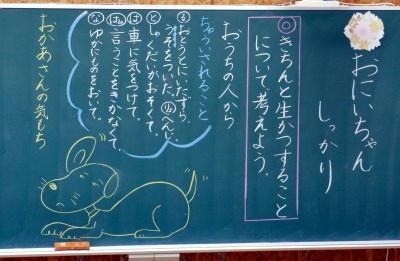 おにいちゃん
しっかり
◎きちんと生かつすること
について、考えよう。
おうちの人から
ちゅういされること
おとうとにいたずら。
うそをついた。へんじ。
しゅくだいがおそくて。
は車に気をつけて。
言うことをきかなくて。
な ゆかにものをおいて。
おかあさんの気もち